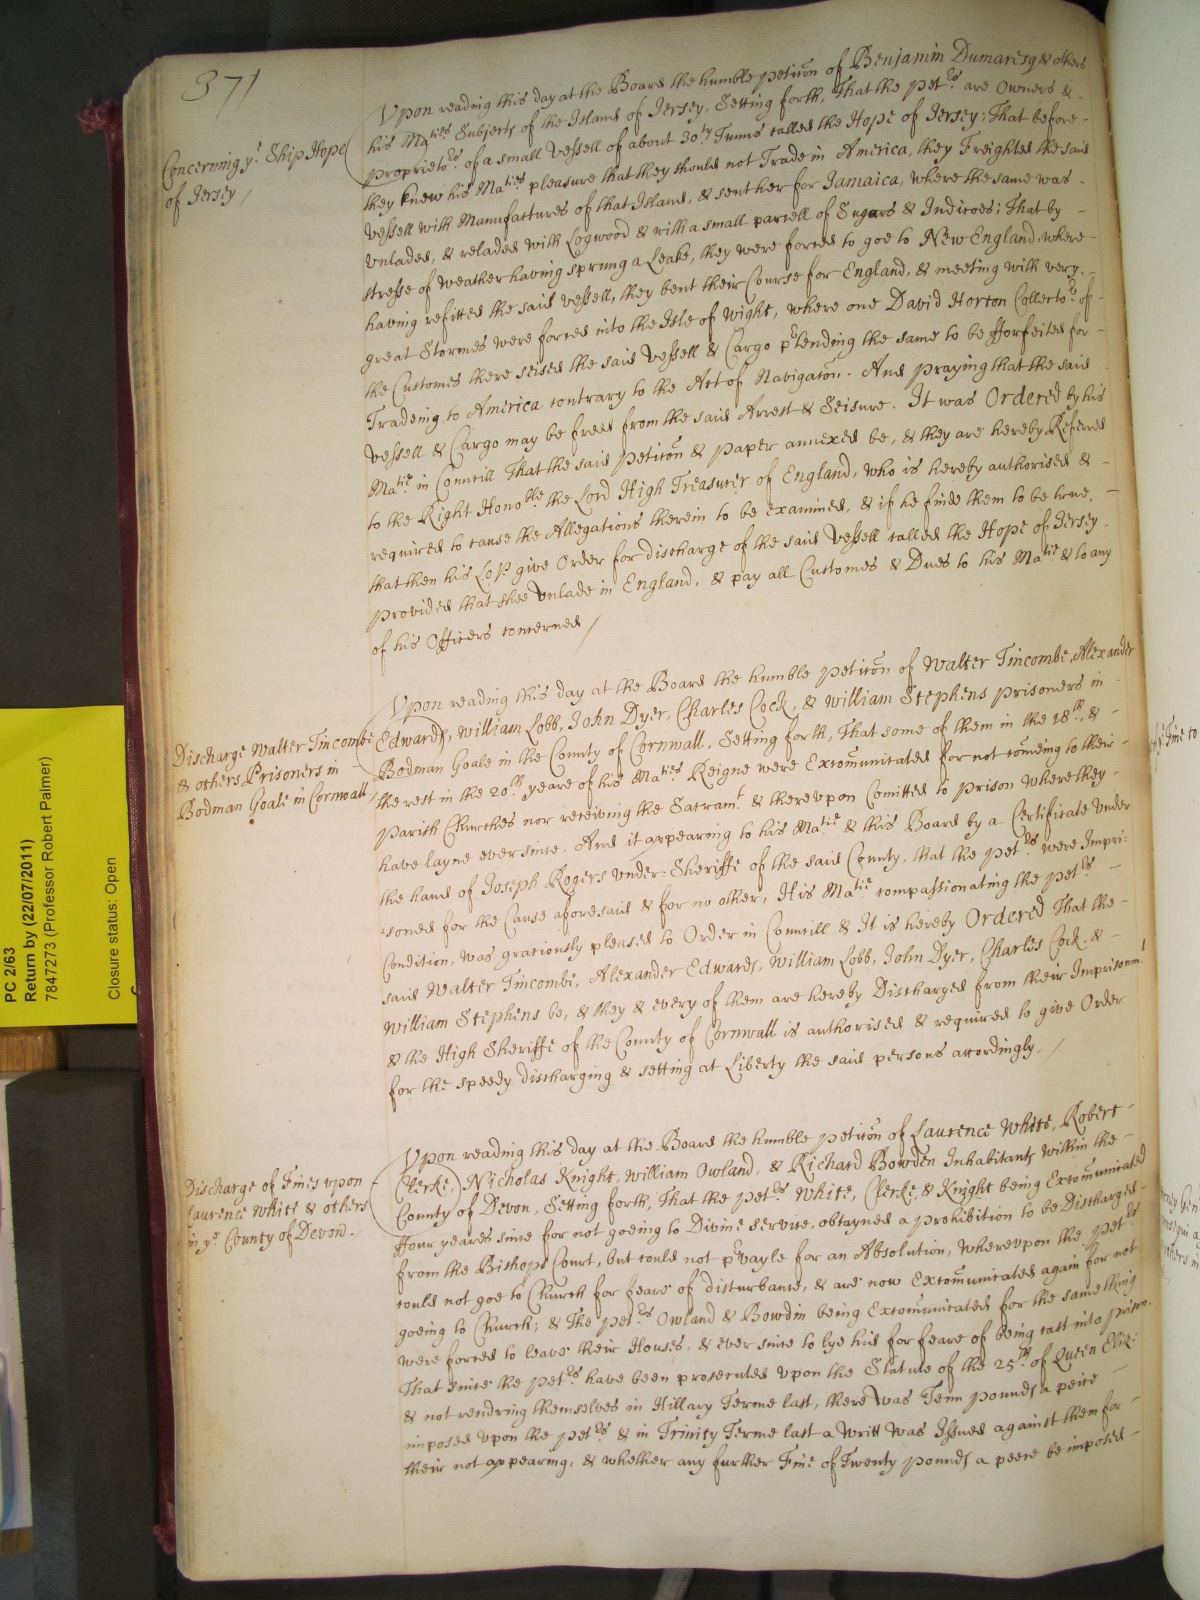 371
Concerning yᵉ Ship Hope
of Jersey /
Upon reading this day at the Board the humble peticõn of Benjamin Dumaresq & others
his Maᵗⁱᵉˢ Subjects of the Island of Jersey, Setting forth, That the petʳˢ are Owners &
proprietoʳˢ of a small vessell of about 30ᵗʸ Tunns called the Hope of Jersey; That before
they knew his Maᵗⁱᵉˢ pleasure that they should not Trade in America, they Freighted the said
vessell with Manufactures of that Island, & sent her for Jamaica, where the same was
unladed, & reladed with Logwood & with a small parcell of Sugars & Indicoes; That by
stresse of weather having sprung a Leake, they were forced to goe to New England, where
having refitted the said vessell, they bent their Course for England, & meeting with very
great Stormes were forced into the Isle of wight, where one David Horton Collectoʳ of
the Customes there seised the said Vessell & Cargo pʳtending the same to be fforfeited for
Tradeing to America contrary to the Act of Navigatõn. And praying that the said
Vessell & Cargo may be freed from the said Arrest & Seisure. It was Ordered by his
Maᵗⁱᵉ in Councill That the said peticõn & paper annexed be, & they are hereby Referred
to the Right Honoᵇˡᵉ the Lord High Treasurer of England, who is hereby authorised &
required to cause the Allegations therein to be examined, & if he finde them to be true,
that then his Loᵖ give Order for discharge of the said Vessell called the Hope of Jersey
provided that shee unlade in England, & pay all Customes & Dues to his Maᵗⁱᵉ & to any
of his Officers concerned /
Discharge Walter Tincombe
& others Prisoners in
Bodman Goale in Cornwall
Upon reading this day at the Board the humble peticõn of Walter Tincombe, Alexander
Edwards, William Lobb, John Dyer, Charles Cock, & William Stephens prisoners in
Bodman Goale in the County of Cornwall, Setting forth, That some of them in the 18ᵗʰ, &
the rest in the 20ᵗʰ yeare of his Maᵗⁱᵉˢ Reigne were Excom̃unicated for not com̃eing to their
parish Churches nor receiving the Sacramᵗ & thereupon Com̃itted to prison where they
have layne ever since. And it appearing to his Maᵗⁱᵉ & this Board by a Certificate under
the hand of Joseph Rogers under-Sheriffe of the said County, that the petʳˢ were Impri-
soned for the Cause aforesaid & for no other, His Maᵗⁱᵉ compassionating the petʳˢ
Condition, was graciously pleased to Order in Councill & It is hereby Ordered That the
said Walter Tincombe, Alexander Edwards, William Lobb, John Dyer, Charles Cock, &
William Stephens be, & they & every of them are hereby Discharged from their Imprisonmᵗ
& the High Sheriffe of the County of Cornwall is authorised & required to give Order
for the speedy discharging & setting at Liberty the said persons accordingly. /
Discharge of Fines upon
Laurence White & others
in yᵉ County of Devon.
Upon reading this day at the Board the humble peticõn of Laurence White, Robert
Clerke, Nicholas Knight, William Owland, & Richard Bowden Inhabitants within the
County of Devon, Setting forth, That the petʳˢ White, Clerke, & Knight being Excom̃unicated
ffour yeares since for not goeing to Divine Service, obtayned a prohibition to be Discharged
from the Bishops Court, but could not pʳvayle for an Absolution, Whereupon the petʳˢ
could not goe to Church for feare of disturbance, & are now Excom̃unicated again for not
goeing to Church; & The petʳˢ Owland & Bowdin being Excom̃unicated for the same thing
were forced to leave their Houses, & ever since to lye hid for feare of being cast into prison.
That since the petʳˢ have been prosecuted upon the Statute of the 25ᵗʰ of Queen Eliz:
& not rendring themselves in Hillary Terme last, there was Tenn pounds a peice
imposed upon the petʳˢ & in Trinity Terme last a Writt was Issued against them for
their not appearing, & whether any further Fine of Twenty pounds a peece be imposed
PC 2/63
Return by (22/07/2011)
7847273 (Professor Robert Palmer)
Closure status: Open